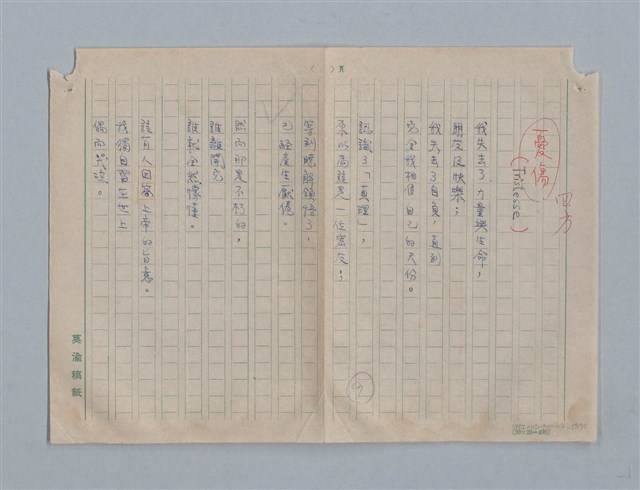 四方
憂傷
(Tristesse)
我失去了力量與生命，
朋友及快樂；
我失去了自負，直到
完全我相信自己的天份。
認識了「真理」，
原以為這是一位密友；
等到瞭解領悟了，
已經產生厭倦。
然而卻是不朽的，
誰離開它
誰就全然懞懂。
該有人回答上帝的旨意。
我獨自留在世上
偶而哭泣。
頁
莫渝稿紙